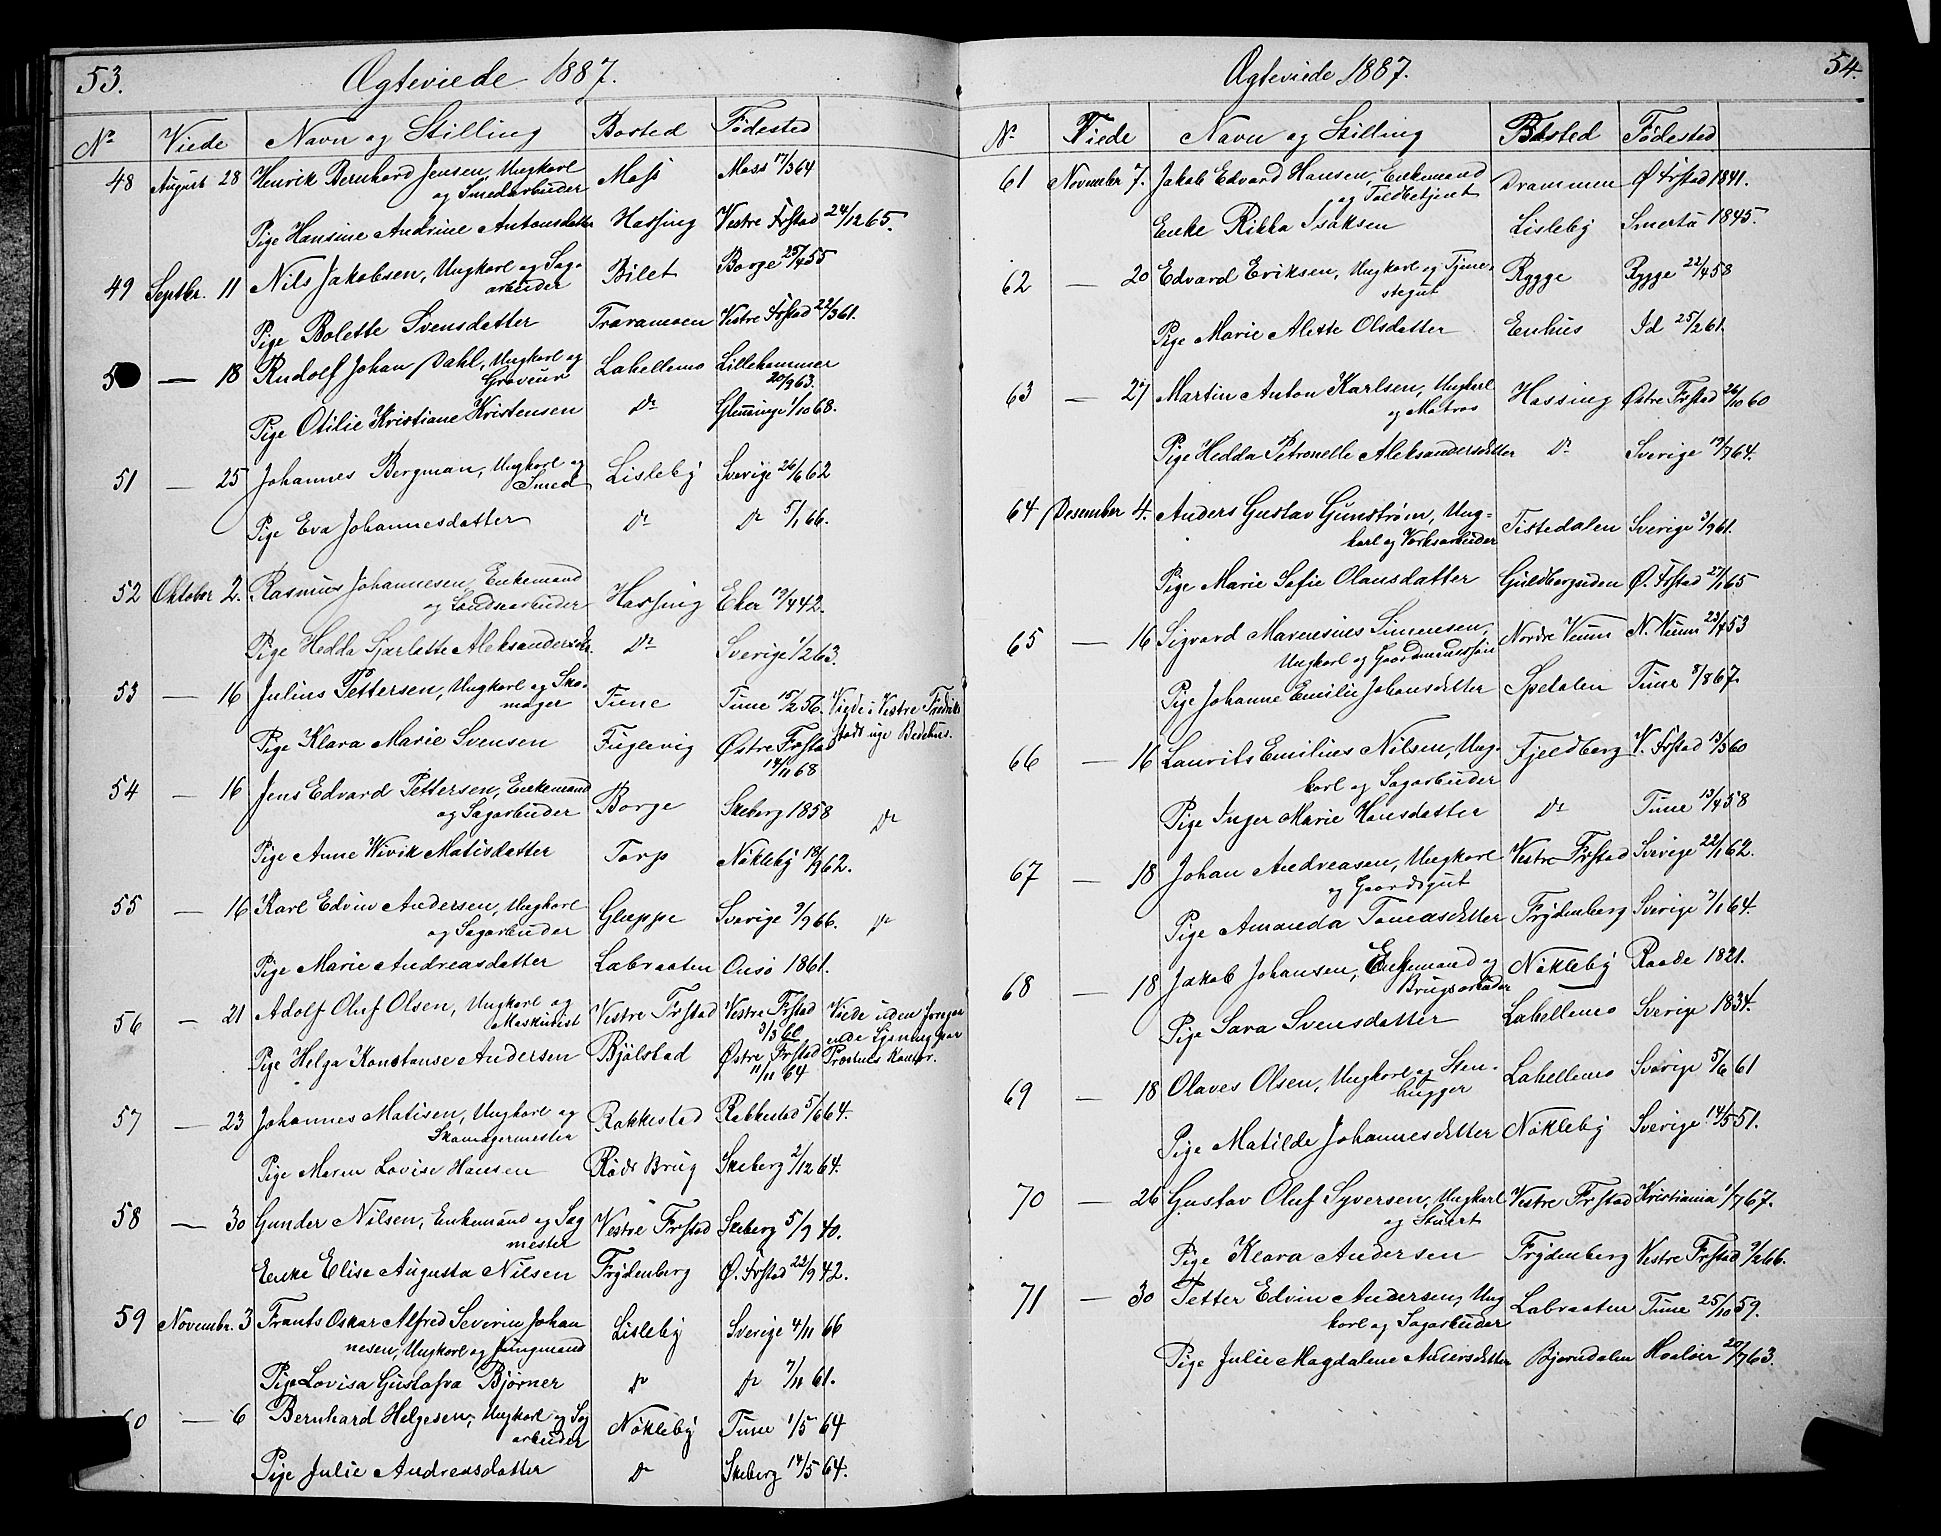 53. Ægteviede 1887.
No Viede Navn og Stilling Bosted Fødested
48 August 28 Henrik Bernhard Jensen, Ungkarl Moss Moss 17/3 64
og Smedarbeider
Pige Hansine Andrine Antonsdatter Hassing Vestre Frstad 24/12 65.
49 Septbr. 11 Nils Jakobsen, Ungkarl og Sag- Bilet Borge 25/4 55
arbeider
Pige Bolette Svensdatter Traramoen Vestre Frstad 22/3 61.
5 — 18 Rudolf Johan Dahl, Ungkarl og Labellemo Lillehammer
Graveur 20/9 63.
Pige Otilie Kristiane Kristensen Do Glemminge 1/10 68.
51 — 25 Johannes Bergman, Ungkarl og Lisleby Sverige 26/6 62
Smed
Pige Eva Johannesdatter Do Do 5/1 66.
52 Oktober 2. Rasmus Johannesen, Enkemand Hassing Eker 19/4 42.
og Landarbeider
Pige Hedda Sjarlette Aleksandersdtr. Do Sverige 1/2 63.
53 — 16 Julius Pettersen, Ungkarl og Sko- Tune Tune 15/2 56. Viede i Vestre Fredrik-
mager stads nye Bedehus.
Pige Klara Marie Svensen Fuglevig Østre Frstad
14/11 68
54 — 16 Jens Edvard Pettersen, Enkemand Borge Skeberg 1858 Do
og Sagarbeider
Pige Anne Wivik Matisdatter Torp Nokleby 18/9 62.
55 — 16 Karl Edvin Andersen, Ungkarl Gluppe Sverige 9/9 66. Do
og Sagarbeider
Pige Marie Andreasdatter Labraaten Onsø 1861.
56 — 21 Adolf Oluf Olsen, Ungkarl og Vestre Frstad Vestre Frstad Viede uden foregaa
Maskinist 3/3 60 ende Lysning paa
Pige Helga Konstanse Andersen Bjølstad Østre Frstad Prestens Kontor.
11/11 64
57 — 23 Johannes Matisen, Ungkarl og Rakkestad Rakkestad 5/6 64.
Skomagermester
Pige Maren Lovise Hansen Røds Brug Skeberg 2/12 64.
58 — 30 Gunder Nilsen, Enkemand og Sag Vestre Frstad Skeberg 5/9 40.
mester
Enke Elise Augusta Nilsen Frydenberg Ø. Frstad 22/9 42.
59 Novembr. 3 Frants Oskar Alfred Severin Johan Lisleby Sverige 4/11 66
nesen, Ungkarl og Jungmand
Pige Lovisa Gustafva Bjørner Do Do 7/11 61.
60 — 6 Bernhard Helgesen, Ungkarl og Sag Nøkleby Tune 1/5 64
arbeider
Pige Julie Andreasdatter Do Skeberg 14/5 64.
Ægteviede 1887. 54.
No Viede Navn og Stilling Bosted Fødested
61 November 7. Jakob Edvard Hansen, Enkemand Drammen Ø Frstad 1841.
og Toldbetjent
Enke Rikka Isaksen Lisleby Smertu 1845.
62 — 20 Edvard Eriksen, Ungkarl og Tjene- Rygge Rygge 22/4 58
stegut
Pige Marie Alette Olsdatter Enhus Id 25/2 61.
63 — 27 Martin Anton Karlsen, Ungkarl Hassing Østre Frstad 26/10 60
og Matros
Pige Hedda Petronelle Aleksandersdtter Do Sverige 19/7 64.
64 Desember 4. Anders Gustav Gunstrøm, Ung- Tistedalen Sverige 3/9 61.
karl og Verksarbeider
Pige Marie Sofie Olausdatter Guldbergsiden Ø. Frstad 27/1 65
65 — 16 Sigvard Marenius Simensen, Nordre Veum N. Veum 23/4 53
Ungkarl og Gaardmandssøn
Pige Johanne Emilie Johansdtter Spetalen Tune 8/8 67.
66 — 16 Laurits Emilius Nilsen, Ung- Fjeldberg V. Frstad 13/3 60
karl og Sagarbeider
Pige Inger Marie Hansdatter Do Tune 13/4 58
67 — 18 Johan Andreasen, Ungkarl Vestre Frstad Sverige 22/1 62.
og Gaardsgut
Pige Amanda Tomasdtter Frydenberg Sverige 7/1 64.
68 — 18 Jakob Johansen, Enkemand og Nøkleby Raade 1821.
Brugsarbeider
Pige Sara Svensdatter Labellemo Sverige 1834.
69 — 18 Olaves Olsen, Ungkarl og Sten- Labellemo Sverige 5/6 61
hugger
Pige Matilde Johannesdtter Nøkleby Sverige 14/5 51.
70 — 26 Gustav Oluf Syversen, Ungkarl Vestre Frstad Kristiania 1/7 67.
og Stuert
Pige Klara Andersen Frydenberg Vestre Frstad 9/2 66.
71 — 30 Petter Edvin Andersen, Ung Labraaten Tune 25/10 59.
karl og Sagarbeider
Pige Julie Magdalene Andersdtter Bjørndalen Hvaløer 20/7 63.